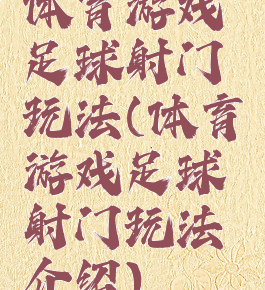 体育游戏
足球射门
玩法(体育
游戏足球
射门玩法
介绍)